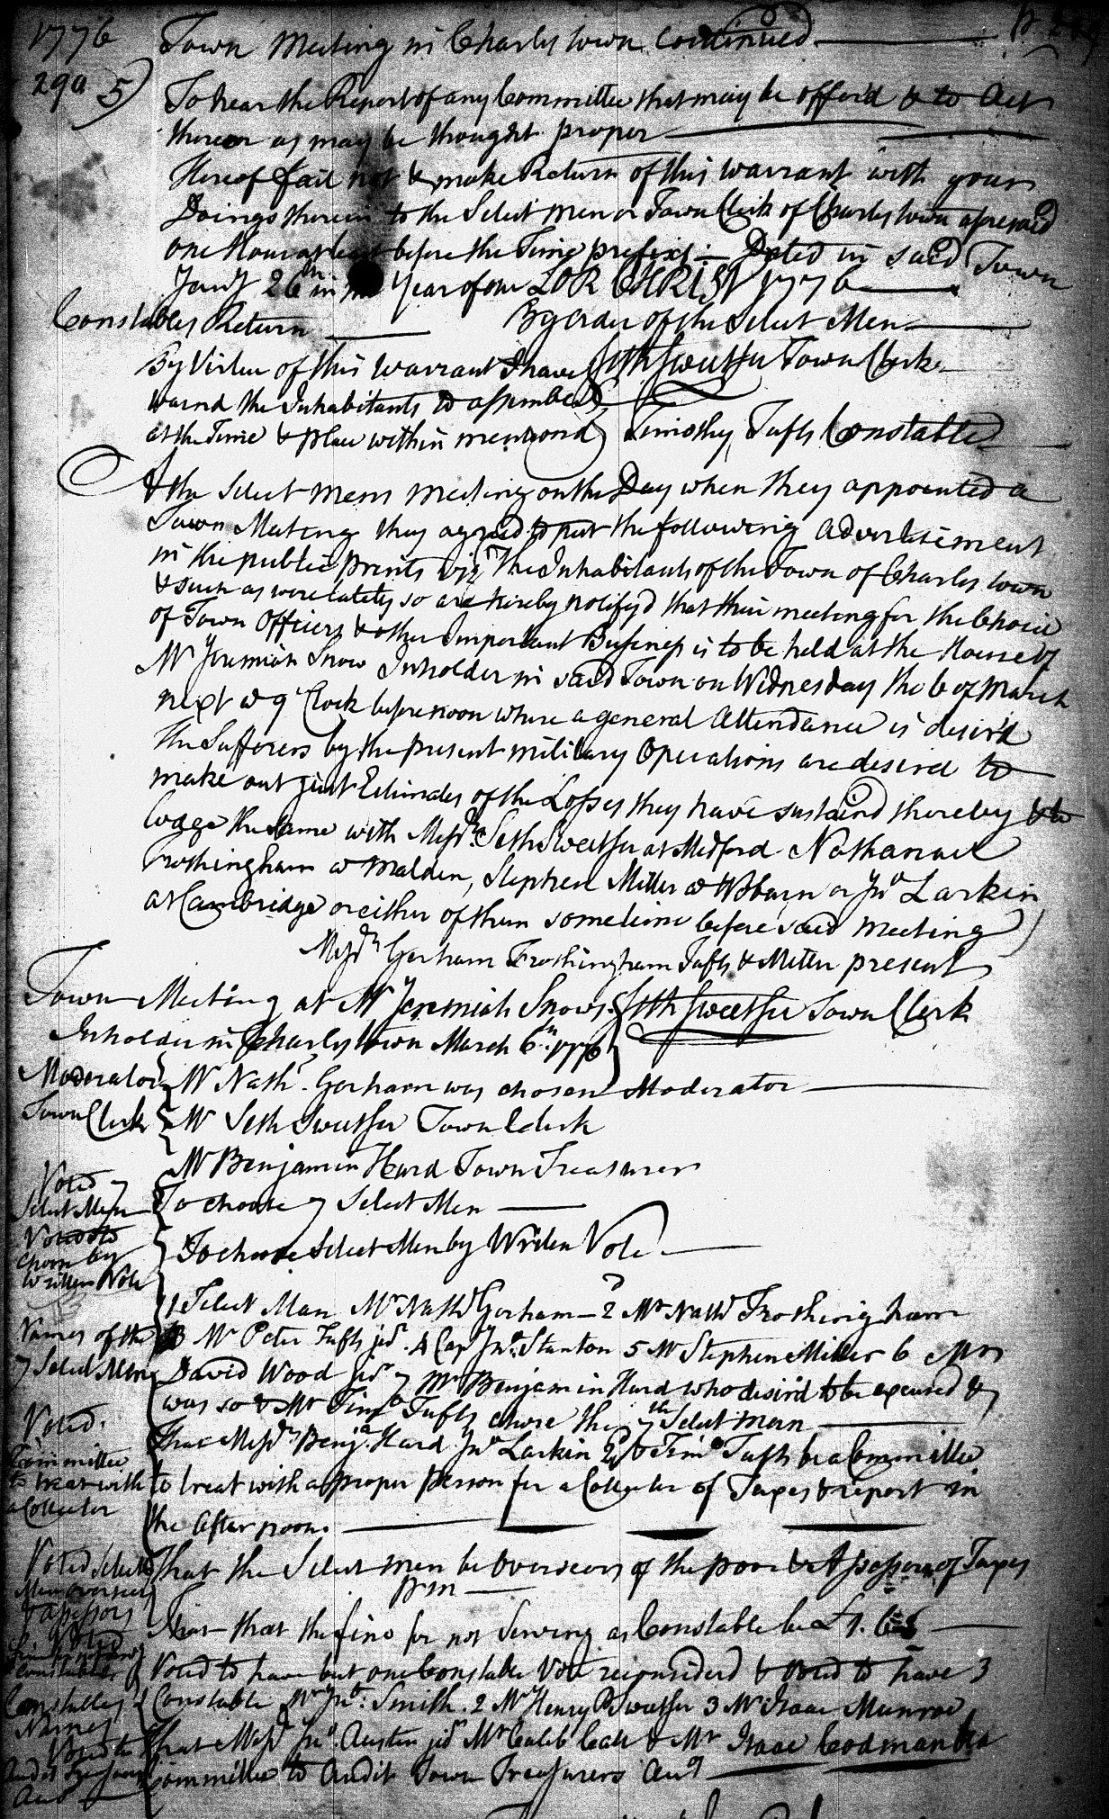 1776 Town Meeting in Charlestown Continued
290 5) To hear the Report of any Committee that may be offerd & to Act
thereon as may be thought proper
Hereof fail not & make Return of this warrant with your
Doings therein to the Select men or Town Clerk of Charlestown aforesaid
one Hour at least before the Time prefixt :— Dated in said Town
Jany 26th in the Year of our LOR CHRIST 1776
Constables Return By Order of the Select Men
By Virtue of this Warrant I have Seth Sweetser Town Clerk
warnd the Inhabitants to assemble
at the Time & place within mentiond Timothy Tufts Constable
the Select mens meeting on the Day when they appointed a
Town Meeting they agreed to put the following advertisement
in the public prints viz The Inhabitants of the Town of Charlestown
& such as were lately so are hereby notifyd that their meeting for the Choice
of Town Officers & other Important Business is to be held at the House of
Mr Jeremiah Snow Inholder in said Town on Wednesday the 6 of March
next at 9 Clock before noon where a general Attendance is desird
The Sufferers by the present military Operations are desired to
make out just Estimates of the Losses they have sustaind thereby & to
lodge the same with Messrs Seth Sweetser at Medford Nathanael
Frothingham at Malden, Stephen Miller at Woburn or Jno Larkin
at Cambridge or either of them sometime before said meeting
Messrs Gorham Frothingham Tufts & Miller present
Town Meeting at Mr Jeremiah Snows Seth Sweetser Town Clerk
Inholder in Charlestown March 6th 1776
Moderator Mr Nathl Gorham was chosen Moderator
Town Clerk Mr Seth Sweetser Town Clerk
Mr Benjamin Hurd Town Treasurer
Voted 7 Select Men To choose 7 Select Men
Voted to choose by written Vote To choose Select Men by Writen Vote
1 Select Man Mr Nathl Gorham — 2 Mr Nathl Frothingham
Names of the 3 Mr Peter Tufts jr 4 Cap Jno Stanton 5 Mr Stephen Miller 6 Mr
7 Select Men David Wood jr 7 Mr Benjamin Hurd who desird to be excused &
was so & Mr Timo Tufts chose the 7th Select man
Voted That Messrs Benja Hurd Jno Larkin & Timo Tufts be a Committee
Committee to treat with to treat with a proper person for a Collector of Taxes & report in
a Collector the Afternoon
Voted Select Men overseers & assessors That the Select men be Overseers of the poor & Assessors of Taxes
PM
That the fine for not Serving as Constable be £1.6.8
Voted to have but one Constable Vote reconsiderd & voted to have 3
Constables Names Constable Mr Jno Smith. 2 Mr Henry Sweetser 3 Mr Isaac Munroe
Voted That Messrs Jno Austin jr Mr Caleb Call & Mr Isaac Codman be a
Committee to Audit Town Treasurers Act